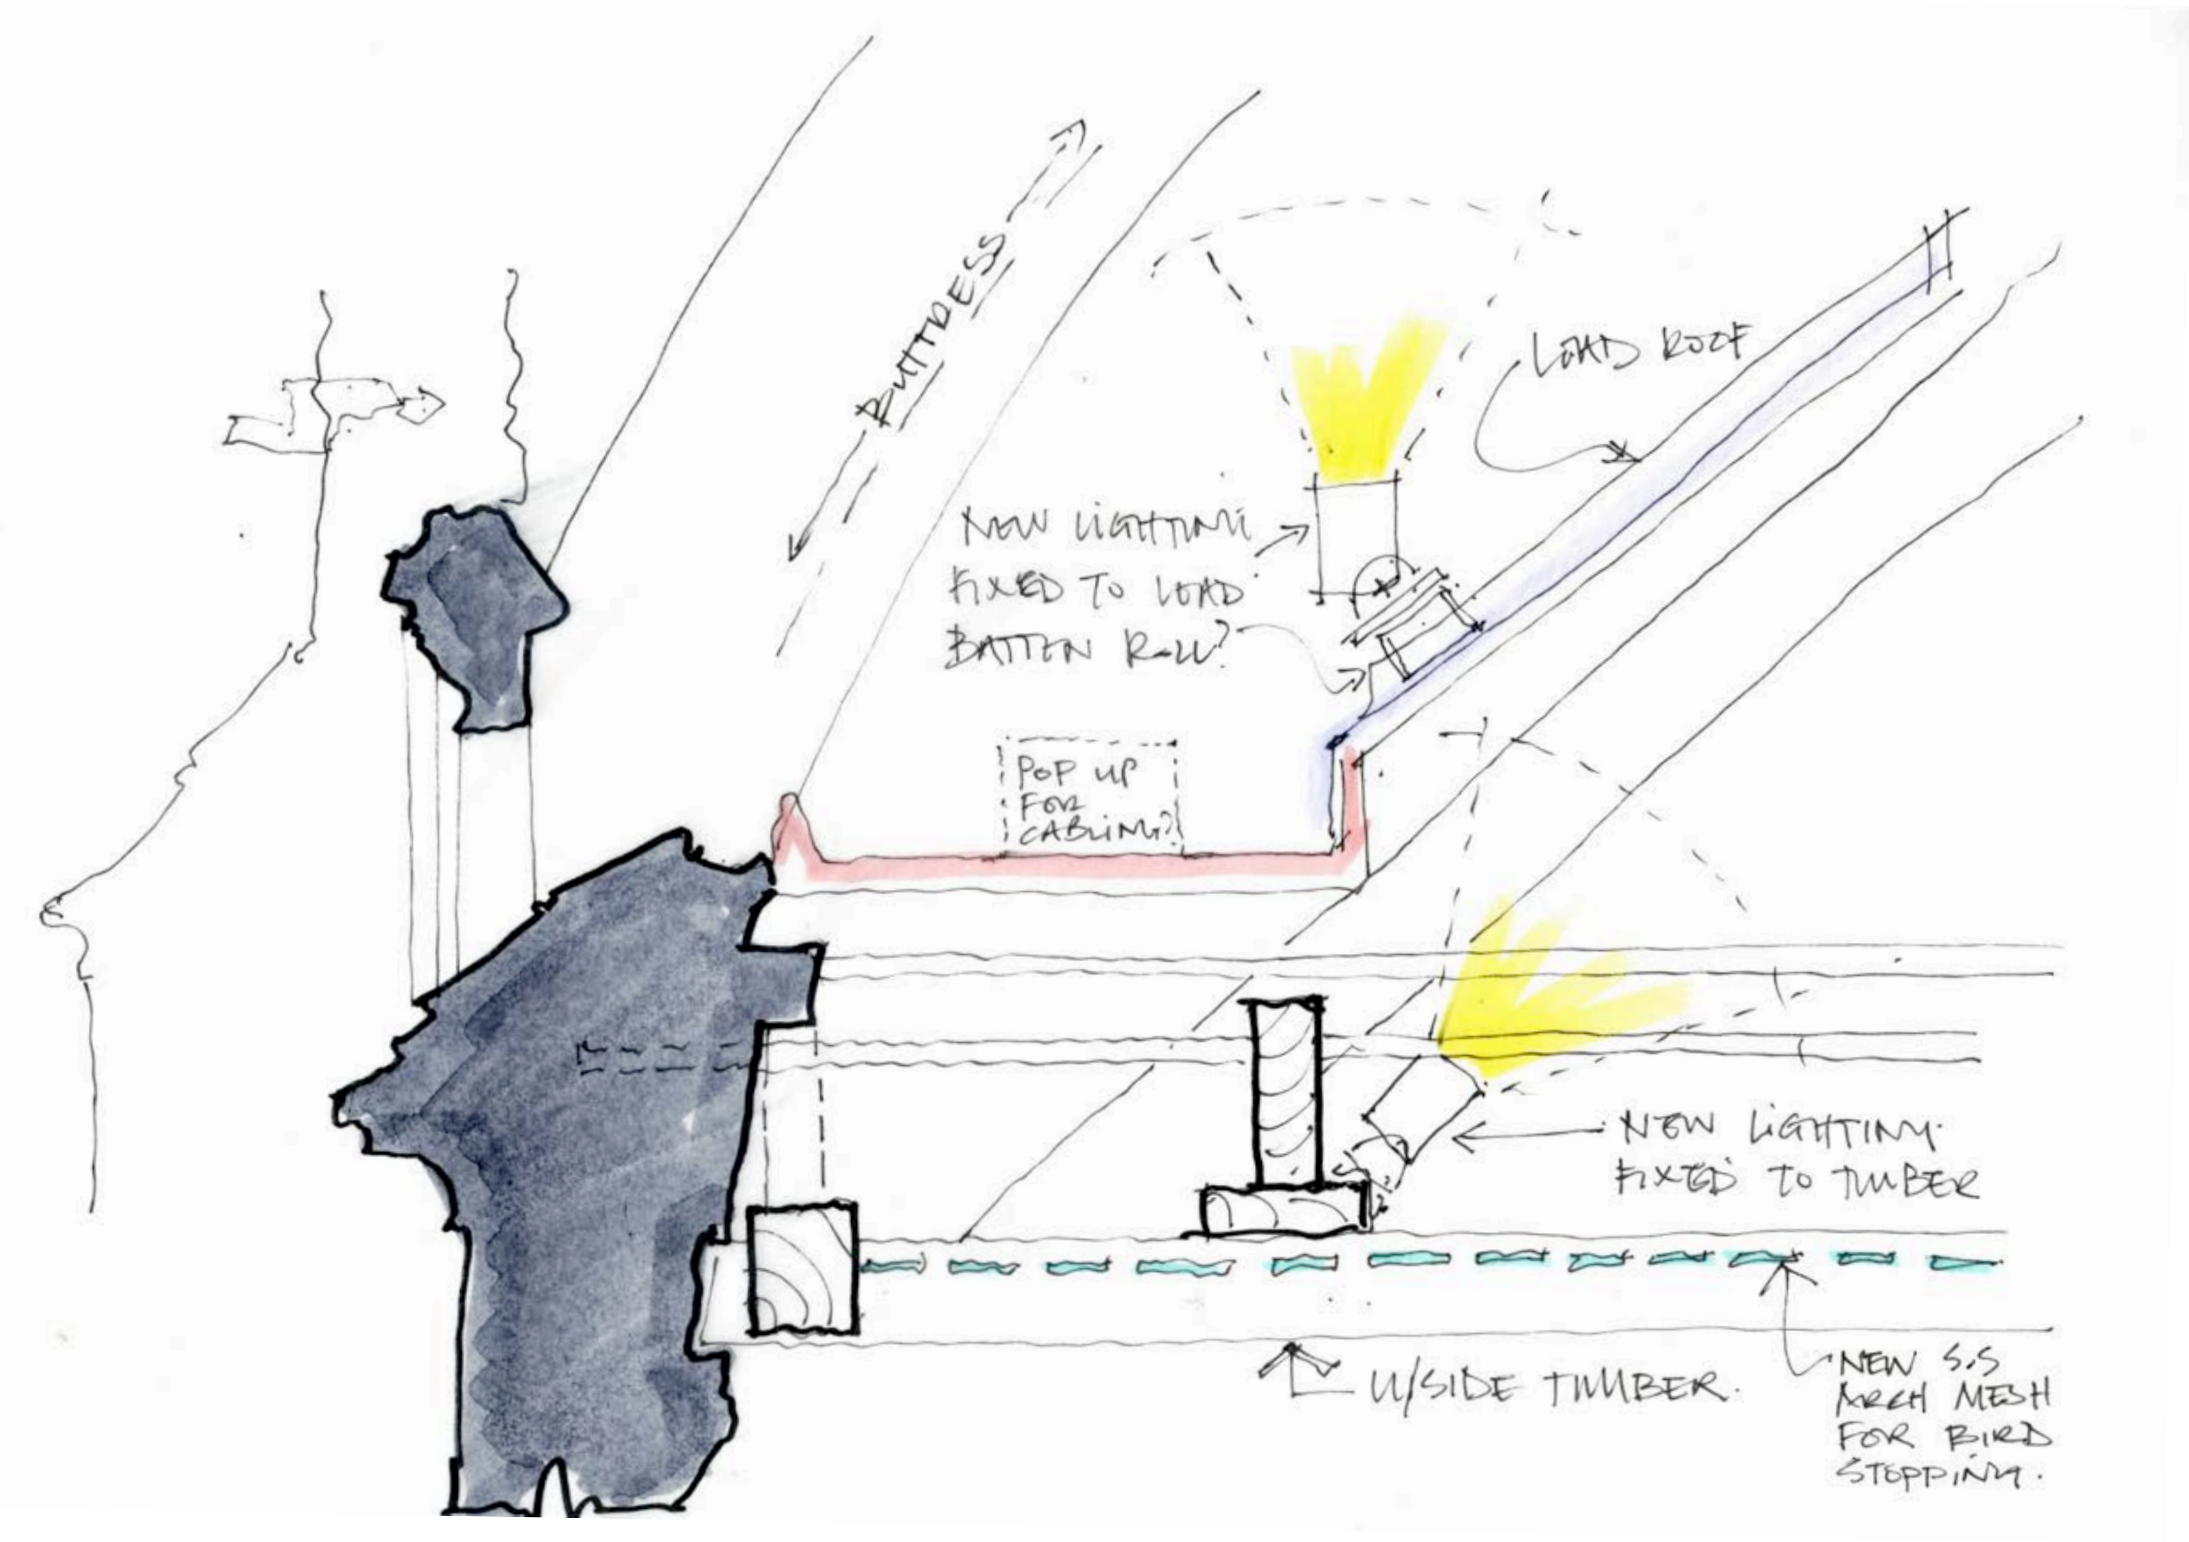 BUTTRESS
LEAD ROOF
NEW LIGHTING
FIXED TO LEAD
BATTEN ROLL?
POP UP
FOR
CABLING?
NEW LIGHTING
FIXED TO TIMBER
U/SIDE TIMBER.
NEW S.S
ARCH MESH
FOR BIRD
STOPPING.